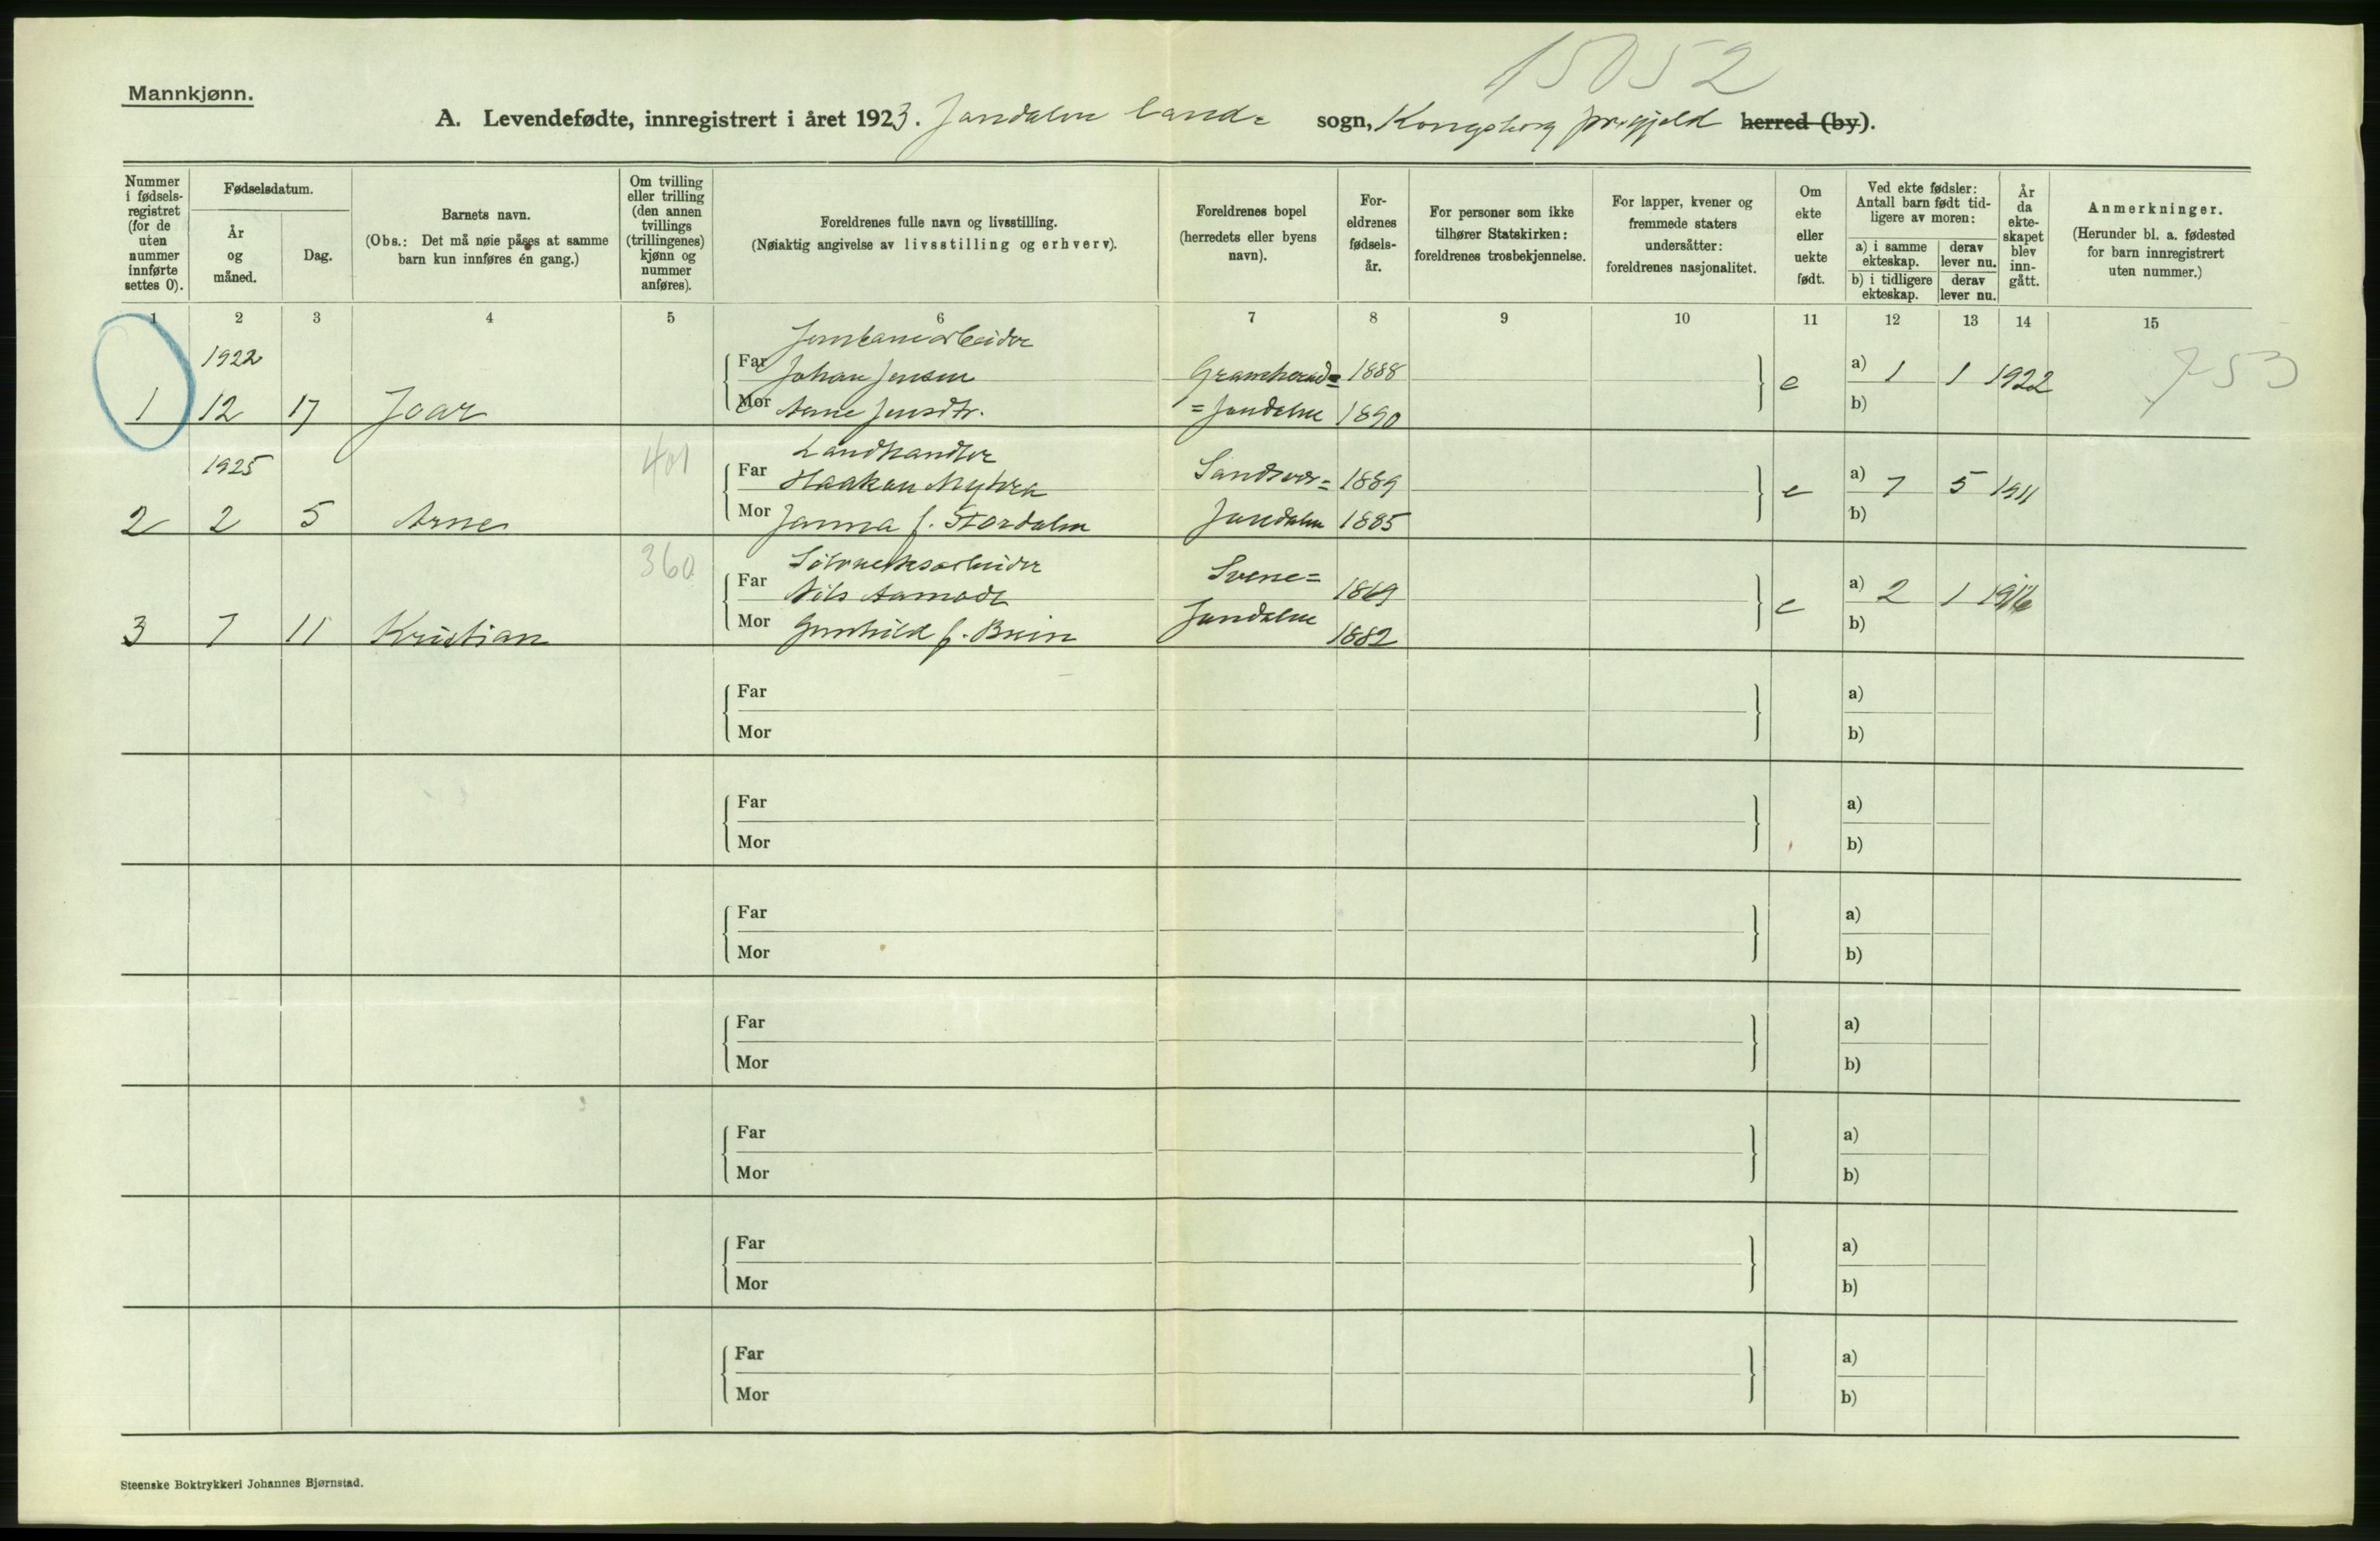 15052
Mannkjønn.
A. Levendefødte, innregistrert i året 1923. Jondalen land= sogn, Kongsberg prgjeld herred (by).
Nummer i fødselsregistret (for de uten nummer innførte settes 0).
Fødselsdatum.
År og måned.
Dag.
Barnets navn.
(Obs.: Det må nøie påses at samme barn kun innføres én gang.)
Om tvilling eller trilling (den annen tvillings (trillingenes) kjønn og nummer anføres).
Foreldrenes fulle navn og livsstilling.
(Nøiaktig angivelse av livsstilling og erhverv).
Foreldrenes bopel (herredets eller byens navn).
Foreldrenes fødselsår.
For personer som ikke tilhører Statskirken: foreldrenes trosbekjennelse.
For lapper, kvener og fremmede staters undersåtter: foreldrenes nasjonalitet.
Om ekte eller uekte født.
Ved ekte fødsler: Antall barn født tidligere av moren:
a) i samme ekteskap.
derav lever nu.
b) i tidligere ekteskap.
derav lever nu.
År da ekteskapet blev inngått.
Anmerkninger.
(Herunder bl. a. fødested for barn innregistrert uten nummer.)
1 2 3 4 5 6 7 8 9 10 11 12 13 14 15
1922 Jernbanearbeider
Far Johan Jensen Gramherad= 1888 e a) 1 1 1922 753
1 12 17 Joar Mor Anne Jensdtr. =Jondalen 1890 b)
1923 401 Landhandler
Far Haakan Myhra Sandsvær= 1889 e a) 7 5 1911
2 2 5 Arne Mor Janna f. Stordalen Jondalen 1885 b)
360 Sölvverksarbeider
Far Nils Aamodt Svene= 1869 e a) 2 1 1916
3 7 11 Kristian Mor Gunhild f. Bruin Jondalen 1882 b)
Far a)
Mor b)
Far a)
Mor b)
Far a)
Mor b)
Far a)
Mor b)
Far a)
Mor b)
Far a)
Mor b)
Far a)
Mor b)
Steenske Boktrykkeri Johannes Bjørnstad.